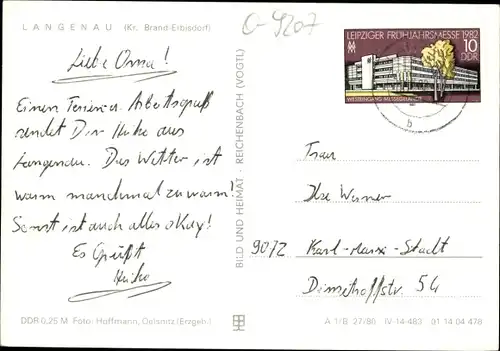 LANGENAU (Kr. Brand-Erbisdorf)
G-9207
Liebe Oma!
Einen Ferien
sendet Dir Heiko aus
Langenau. Das Wetter ist
warm manchmal zu warm!
Sonst ist auch alles okay!
Es Grüßt
Heiko
DDR 0,25 M Foto: Hoffmann, Oelsnitz (Erzgeb.)
BILD UND HEIMAT · REICHENBACH (VOGTL)
LEIPZIGER FRÜHJAHRSMESSE 1982
10
DDR
MM
b
Frau
Ilse Werner
9072 Karl-Marx-Stadt
54
A 1/B 27/86 IV-14-483 01 14 04 478